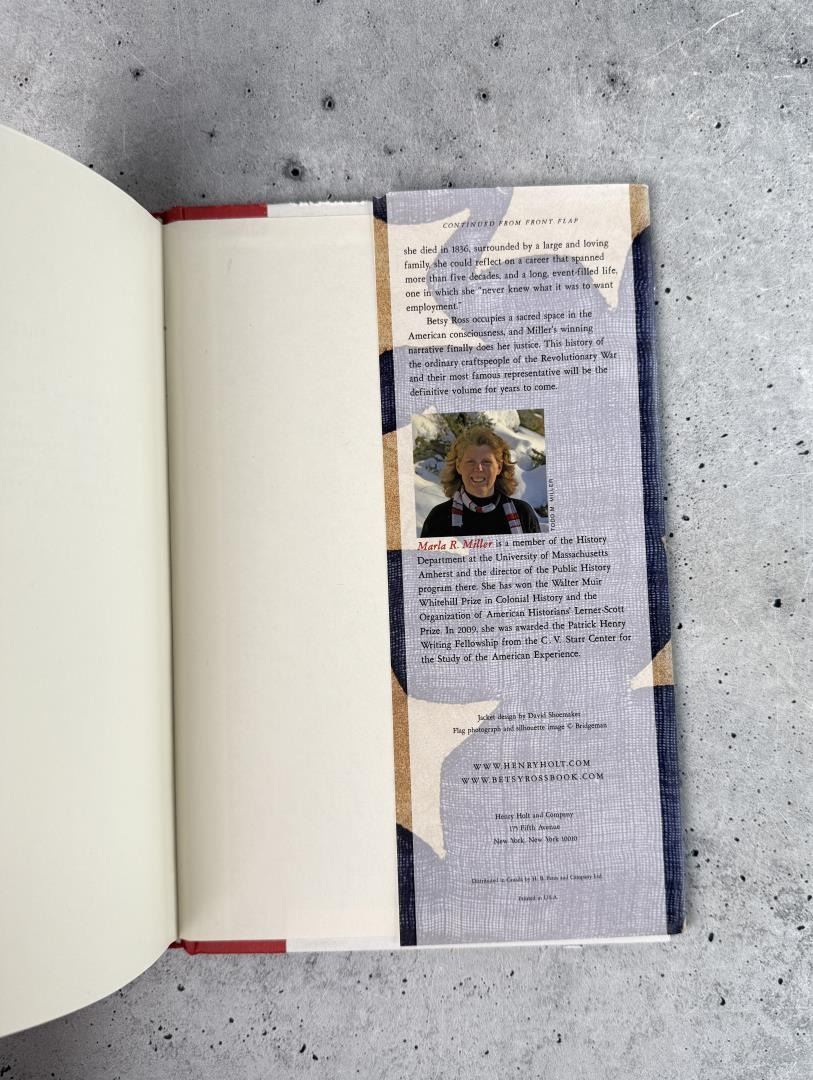 CONTINUED FROM FRONT FLAP
she died in 1836, surrounded by a large and loving
family, she could reflect on a career that spanned
more than five decades, and a long, event-filled life,
one in which she "never knew what it was to want
employment."
Betsy Ross occupies a sacred space in the
American consciousness, and Miller's winning
narrative finally does her justice. This history of
the ordinary craftspeople of the Revolutionary War
and their most famous representative will be the
definitive volume for years to come.
TODD M. MILLER
Marla R. Miller is a member of the History
Department at the University of Massachusetts
Amherst and the director of the Public History
program there. She has won the Walter Muir
Whitehill Prize in Colonial History and the
Organization of American Historians' Lerner-Scott
Prize. In 2009, she was awarded the Patrick Henry
Writing Fellowship from the C. V. Starr Center for
the Study of the American Experience.
Jacket design by David Shoemaker
Flag photograph and silhouette image © Bridgeman
WWW.HENRYHOLT.COM
WWW.BETSYROSSBOOK.COM
Henry Holt and Company
175 Fifth Avenue
New York, New York 10010
Distributed in Canada by H. B. Fenn and Company Ltd.
Printed in U.S.A.